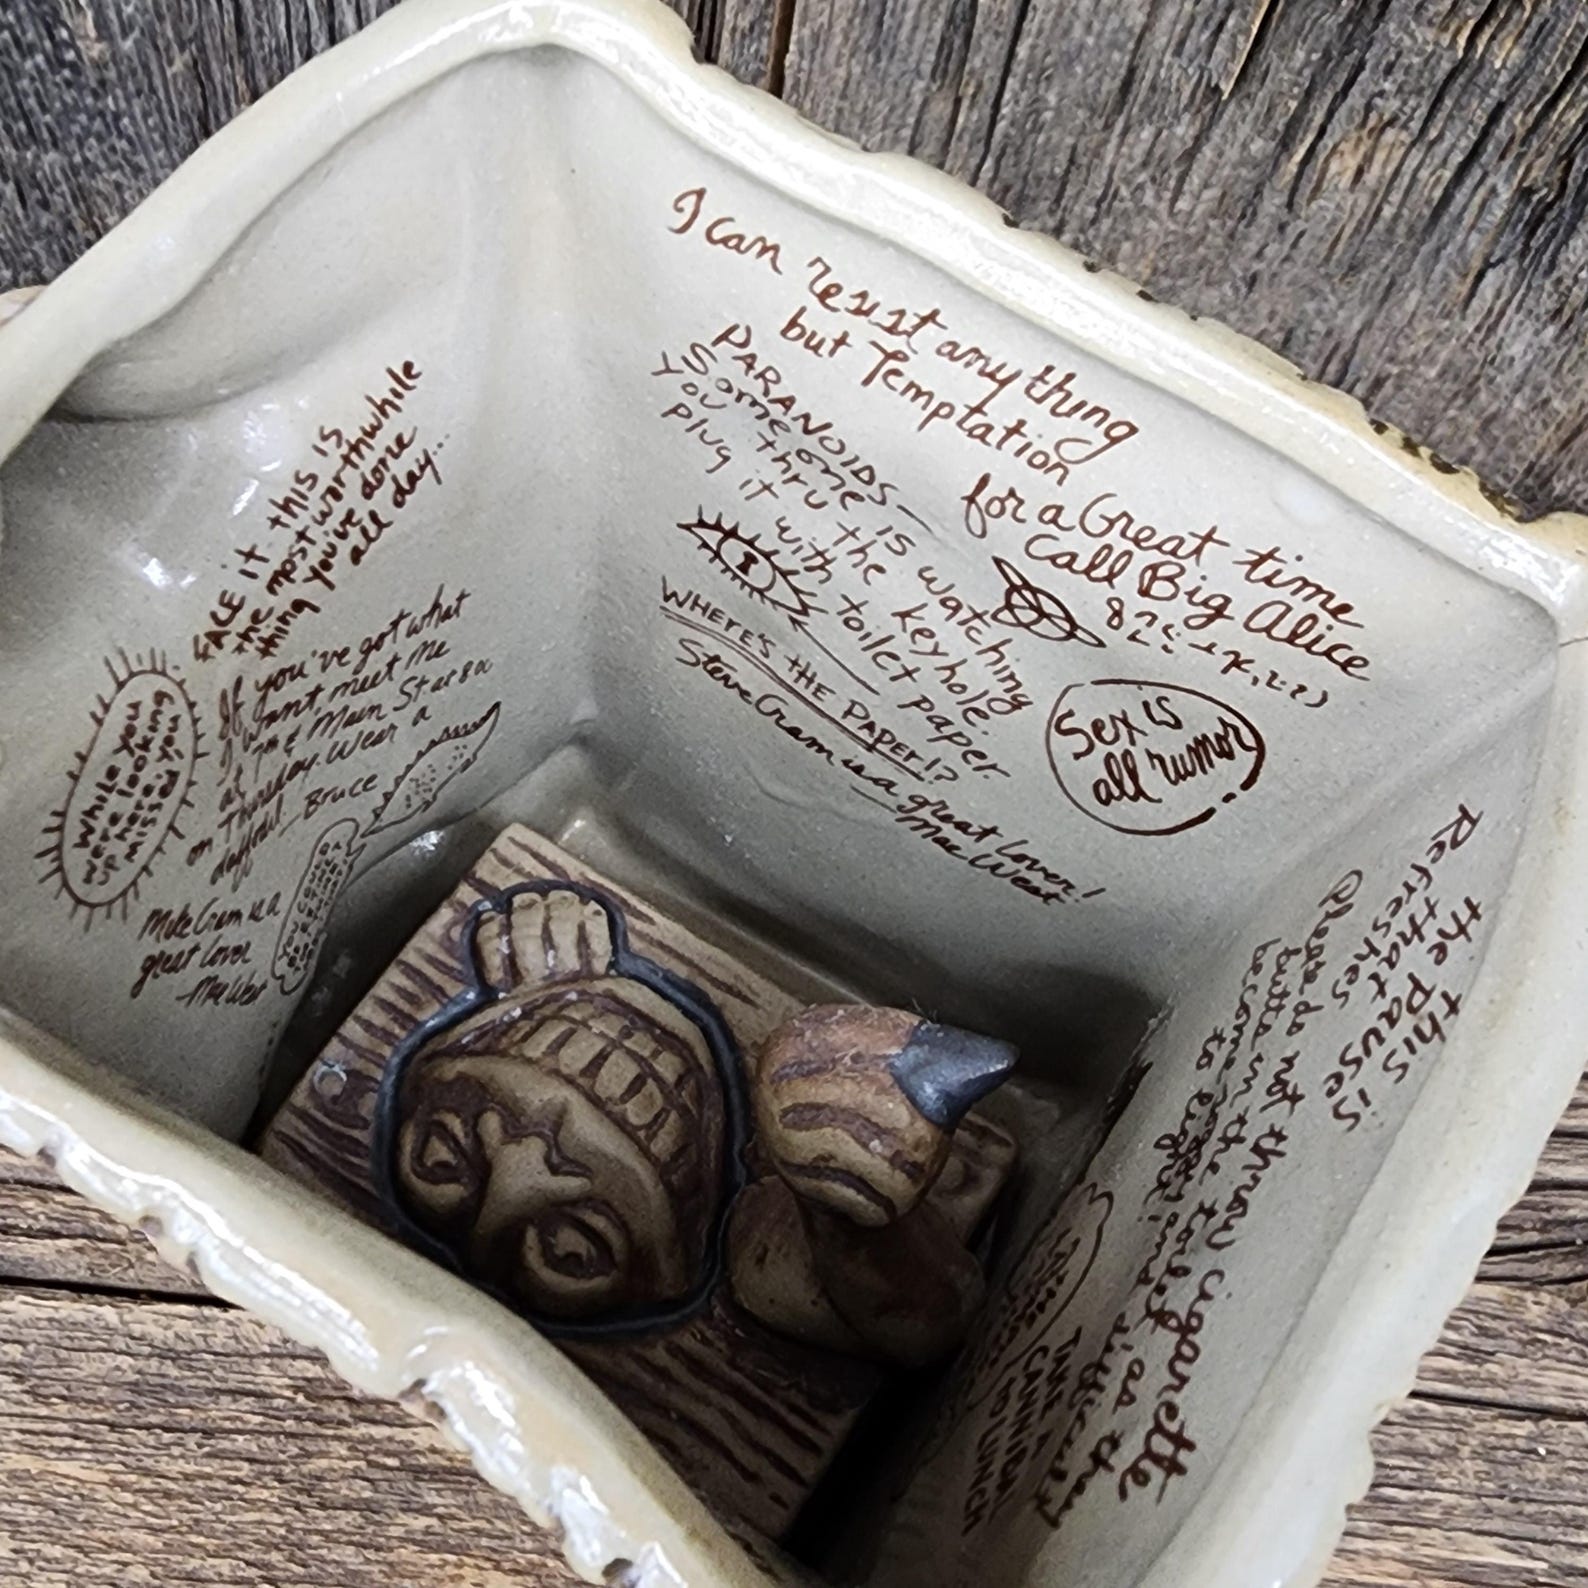 FACE it this is
the most worthwhile
thing you've done
all day...
If you've got what
I want meet me
at 7th & Main St at 8
on Thursday. Wear a
daffodil. - Bruce
While you
were looking
up here,
missed, you
Mike Cram is a
great lover
- Mae West
I can resist anything
but Temptation
PARANOIDS—
Someone is watching
you thru the keyhole.
Plug it with toilet paper.
for a Great time
Call Big Alice
WHERE'S THE PAPER!?
Steve Cram is a great lover!
— Mae West
Sex is
all rumor
this is
the pause
that
Refreshes
Please do not throw cigarette
butts in the toilet as they
become soggy and difficult
to light!
TAKE A
CANNIBAL
TO LUNCH